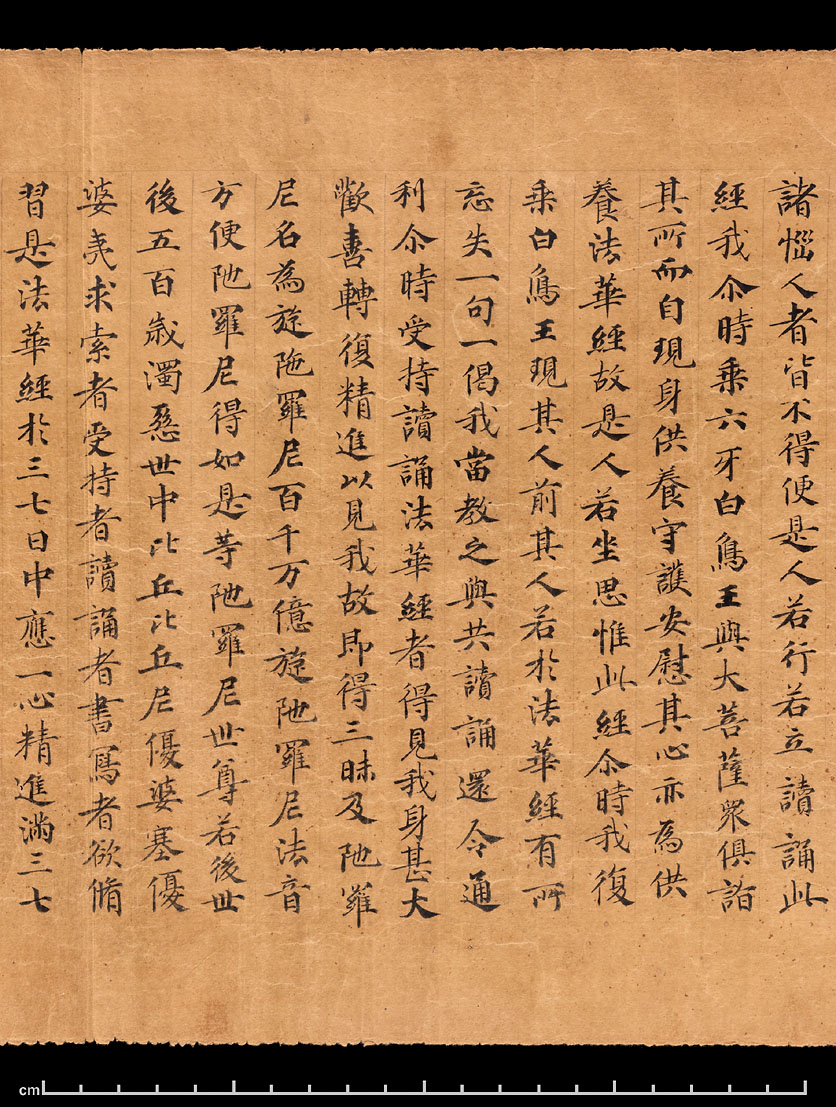 諸惱人者皆不得便是人若行若立讀誦此
經我尒時乘六牙白鳥王與大菩薩衆俱詣
其所而自現身供養守護安慰其心亦為供
養法華經故是人若坐思惟此經尒時我復
乘白鳥王現其人前其人若於法華經有所
忘失一句一偈我當教之與共讀誦還令通
利尒時受持讀誦法華經者得見我身甚大
歡喜轉復精進以見我故即得三昧及陁羅
尼名為旋陁羅尼百千万億旋陁羅尼法音
方便陁羅尼得如是等陁羅尼世尊若後世
後五百歲濁惡世中比丘比丘尼優婆塞優
婆夷求索者受持者讀誦者書寫者欲脩
習是法華經於三七日中應一心精進滿三七
cm